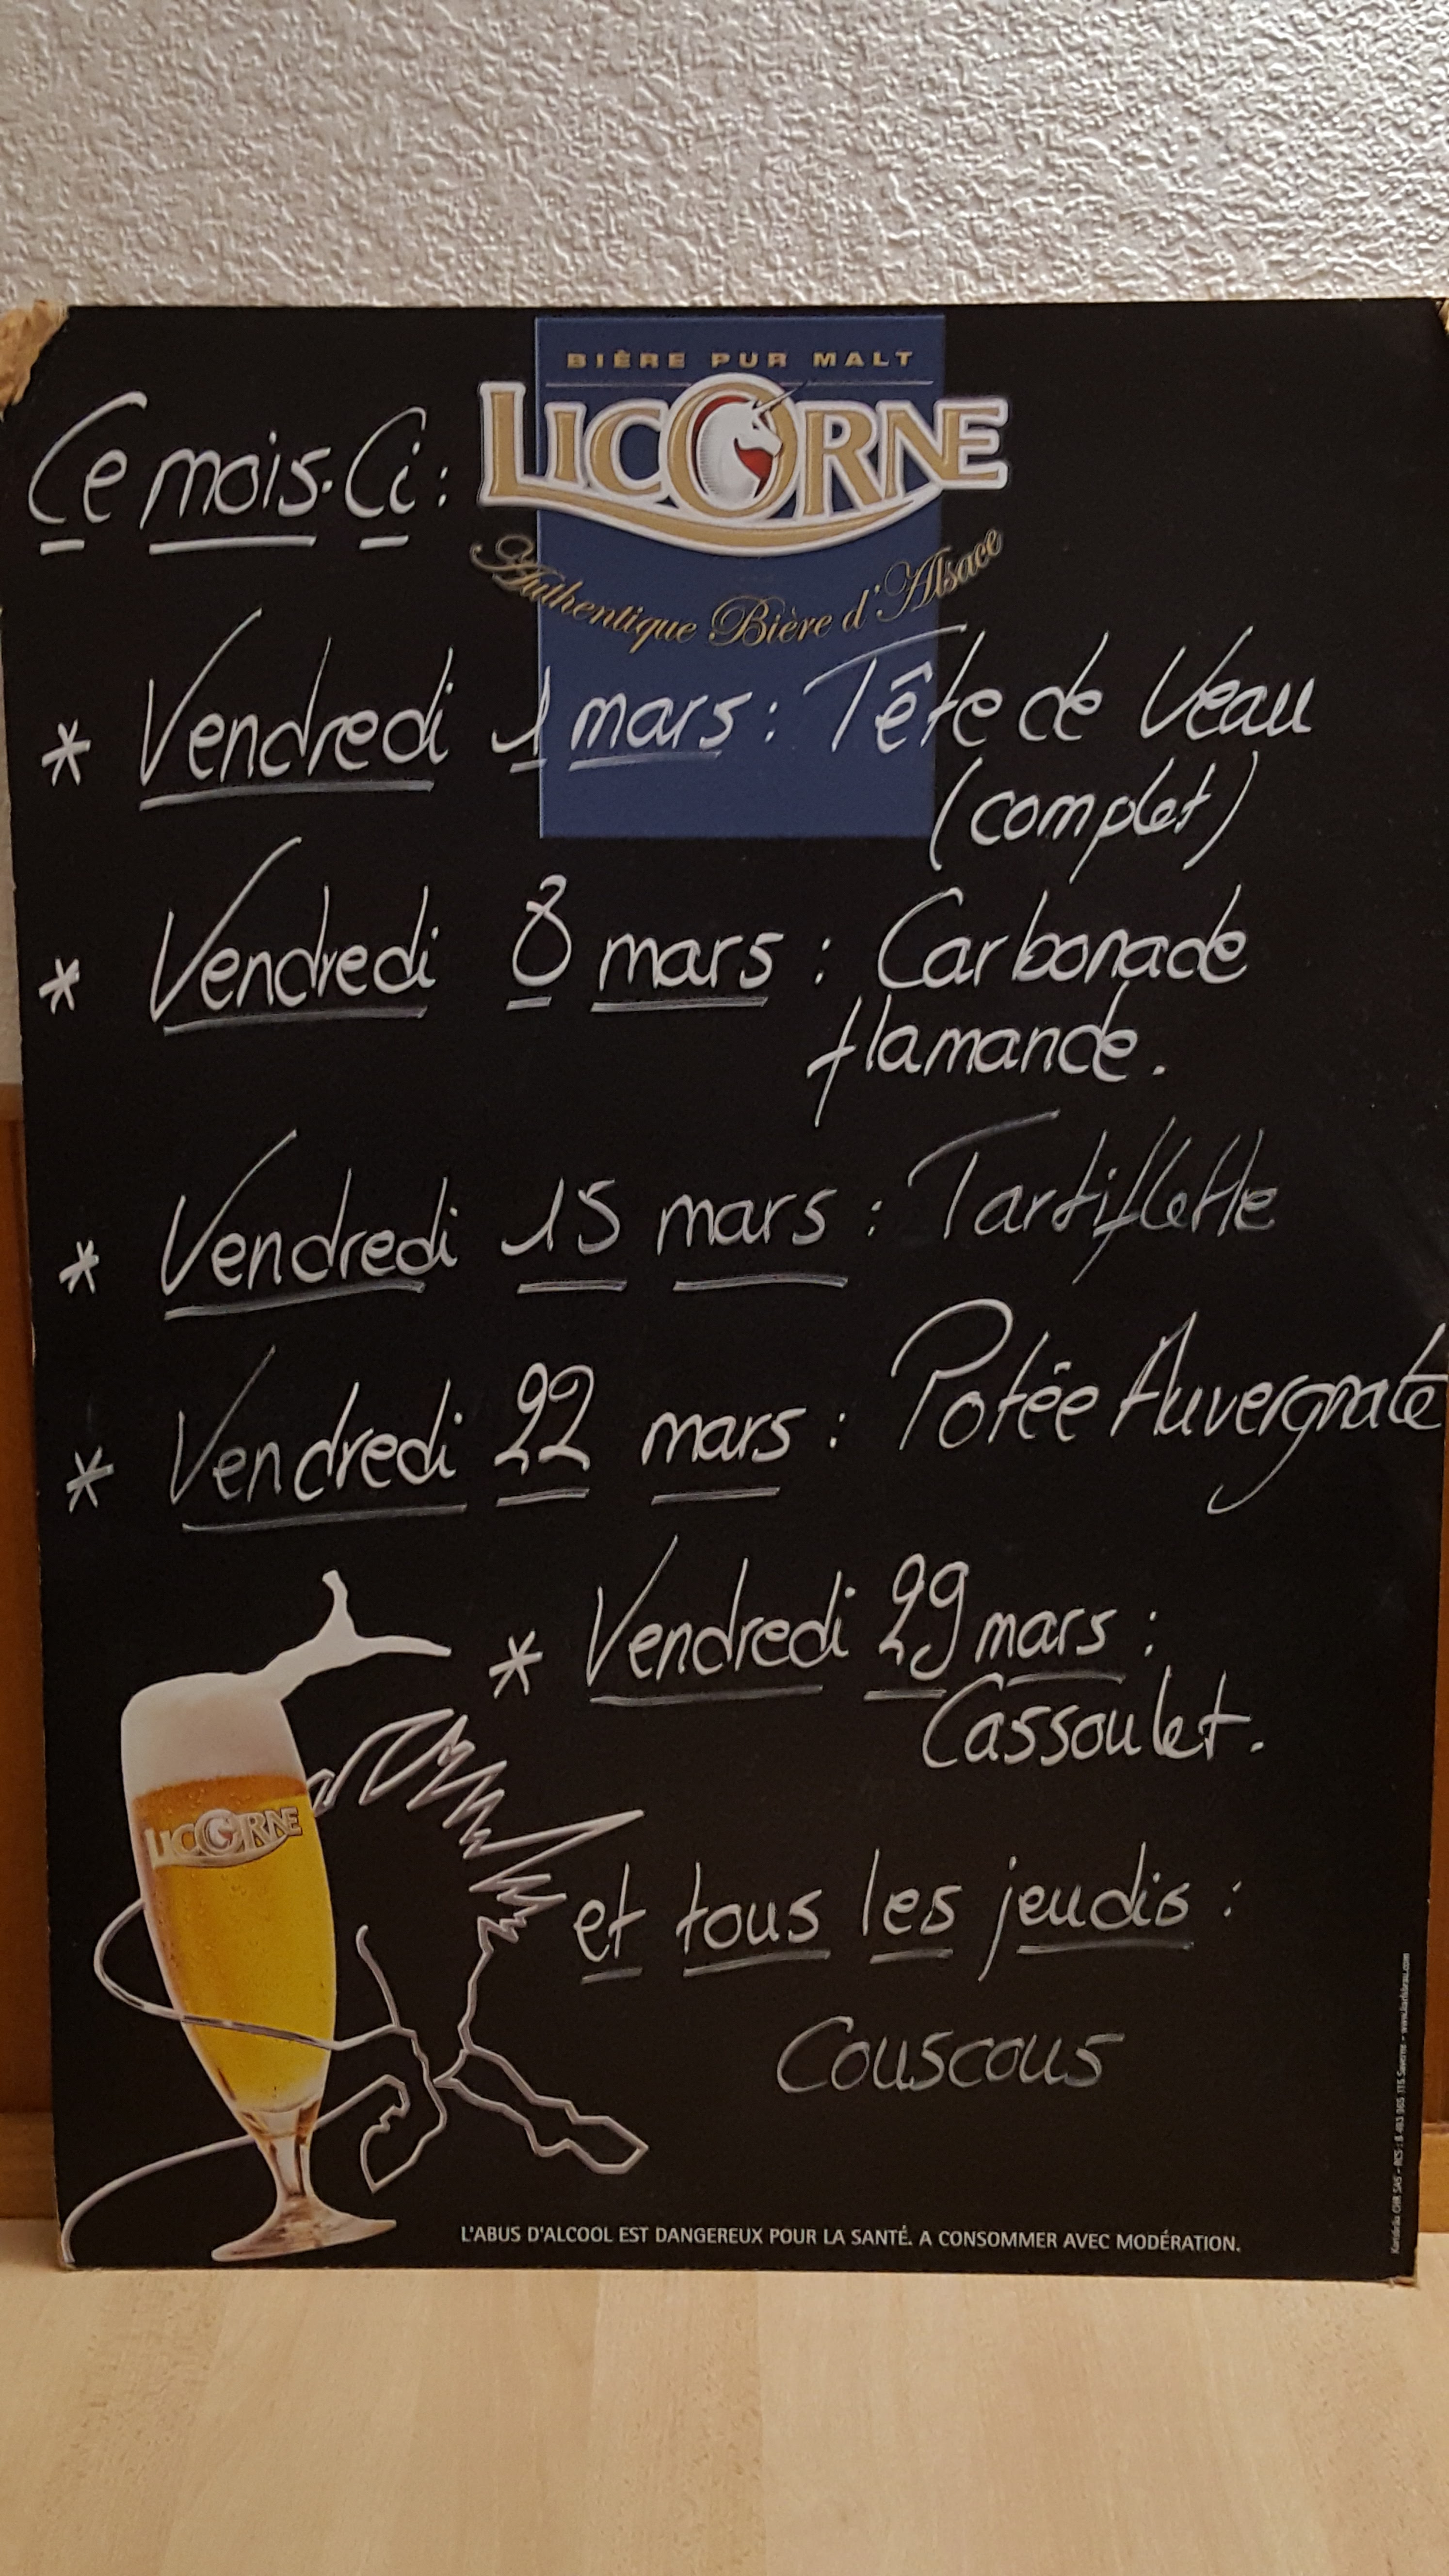 BIÈRE PUR MALT
LICORNE
Authentique Bière d'Alsace
Ce mois-Ci :
* Vendredi 1 mars : Tête de Veau
(complet)
* Vendredi 8 mars : Carbonade
flamande.
* Vendredi 15 mars : Tartiflette
* Vendredi 22 mars : Potée Auvergnate
* Vendredi 29 mars :
Cassoulet.
LICORNE
et tous les jeudis :
Couscous
L'ABUS D'ALCOOL EST DANGEREUX POUR LA SANTÉ. A CONSOMMER AVEC MODÉRATION.